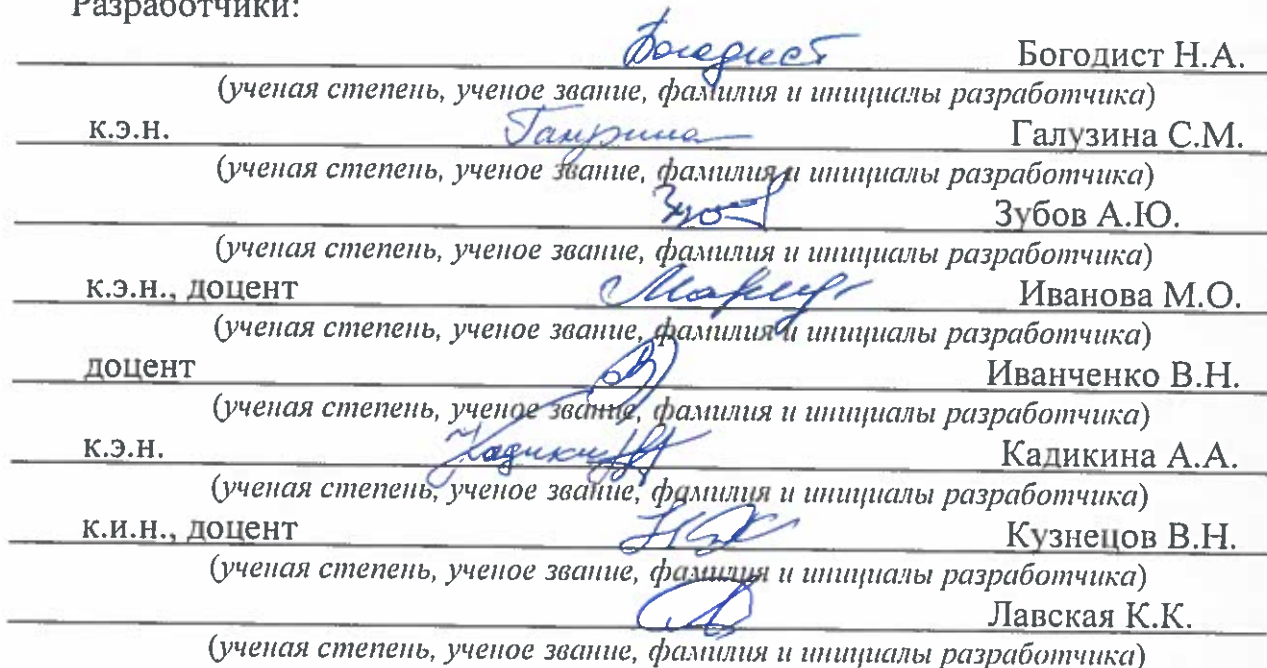 Разработчики:
Богодист Богодист Н.А.
(ученая степень, ученое звание, фамилия и инициалы разработчика)
к.э.н. Галузина Галузина С.М.
(ученая степень, ученое звание, фамилия и инициалы разработчика)
Зубов А.Ю.
(ученая степень, ученое звание, фамилия и инициалы разработчика)
к.э.н., доцент Иванова М.О.
(ученая степень, ученое звание, фамилия и инициалы разработчика)
доцент Иванченко В.Н.
(ученая степень, ученое звание, фамилия и инициалы разработчика)
к.э.н. Кадикина А.А.
(ученая степень, ученое звание, фамилия и инициалы разработчика)
к.и.н., доцент Кузнецов В.Н.
(ученая степень, ученое звание, фамилия и инициалы разработчика)
Лавская К.К.
(ученая степень, ученое звание, фамилия и инициалы разработчика)